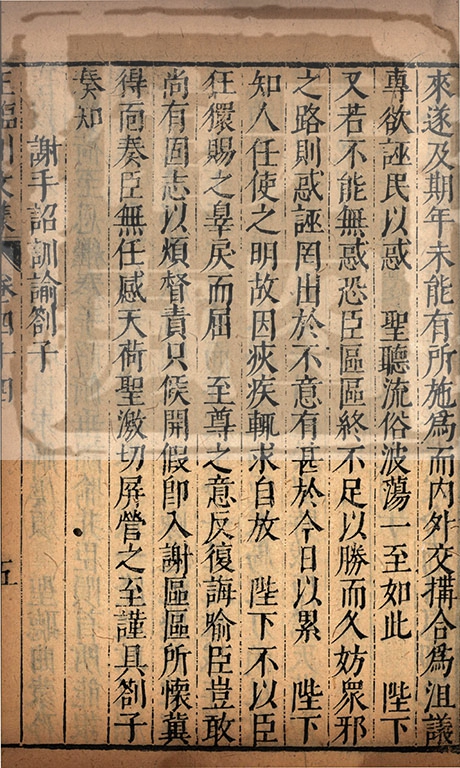 來遂及期年未能有所施爲而內外交搆合爲沮議
專欲誣民以惑　聖聽流俗波蕩一至如此　陛下
又若不能無惑恐臣區區終不足以勝而久妨衆邪
之路則惑誣罔出於不意有甚於今日以累　陛下
知人任使之明故因疢疾輒求自放　陛下不以臣
狂獧賜之辠戾而屈　至尊之意反復誨喻臣豈敢
尚有固志以煩督責只候開假即入謝區區所懷冀
得面奏臣無任感天荷聖激切屏營之至謹具劄子
奏知
謝手詔訓諭劄子
王臨川文集　卷四十四　五